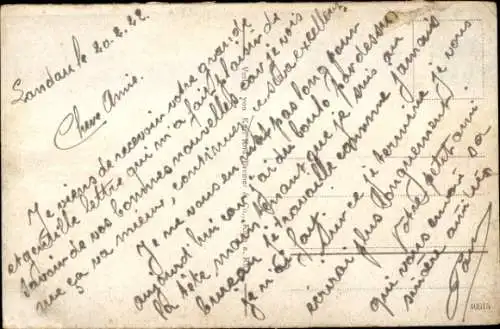 Landau le 20.2.22
Chère Amie.
Je viens de recevoir votre grande
et gentille lettre qui m'a fait plaisir de
savoir de vos bonnes nouvelles car je vois
que ça va mieux, continuer
Je ne vous en pas long pour
aujourd'hui car j'ai du boulo par dessus
la tête maintenant que je suis au
bureau je travaille comme jamais
je n'ai fait
je termine je vous
écrirai plus longuement
Votre petit ami
qui vous envoie sa
sincère amitié
40515